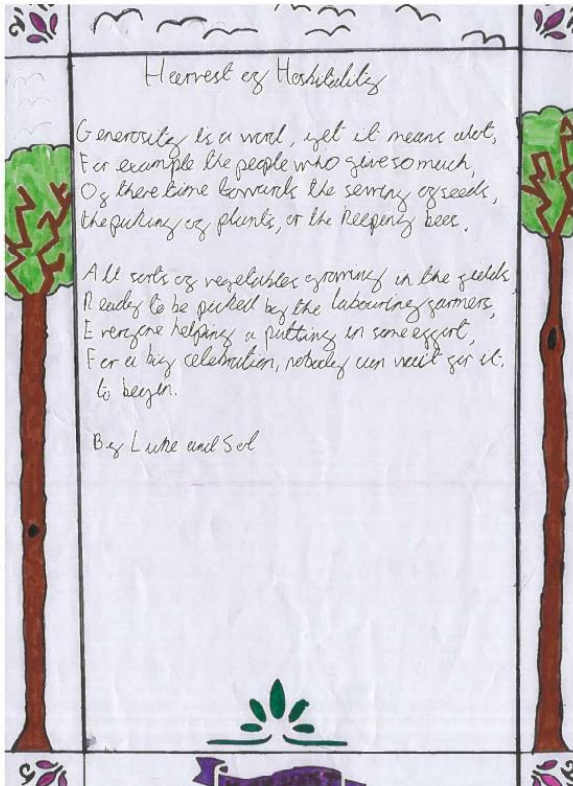 Harvest of Hospitality
Generosity is a word, yet it means alot,
For example the people who give so much,
Of there time towards the sewing of seeds,
the picking of plants, or the keeping bees.
All sorts of vegetables growing in the fields
Ready to be picked by the labouring farmers,
Everyone helping a putting in some effort,
For a big celebration, nobody can wait for it
to begin.
By Luke and Sol